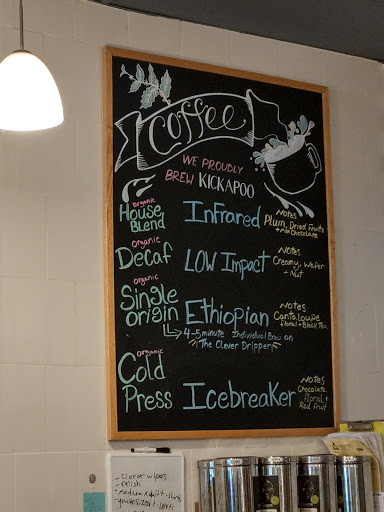 Coffee
WE PROUDLY
BREW KICKAPOO
organic
House
Blend
Infrared
Notes
Plum, Dried Fruits
+ Milk Chocolate
organic
Decaf
Low Impact
Notes
Creamy, Wafer
+ Nut
organic
Single
origin
Ethiopian
Notes
Cantaloupe
floral + Black Tea
4-5 minute Individual Brew on
The Clever Dripper
organic
Cold
Press
Icebreaker
Notes
Chocolate
floral +
Red fruit
- clorox wipes
- relish